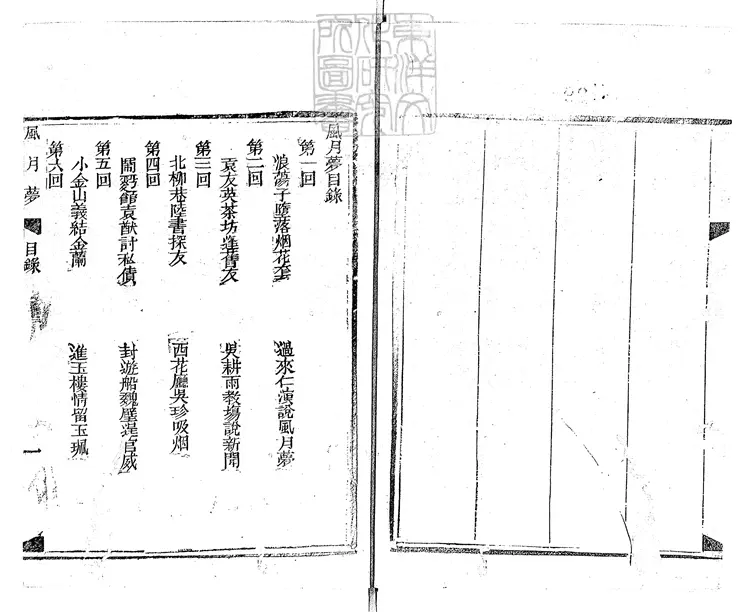 東洋文
化研究
所圖書
風月夢目錄
第一回
浪蕩子墮落烟花套 過來仁演說風月夢
第二回
袁友英茶坊逢舊友 吳耕雨教場說新聞
第三回
北柳巷陸書探友 西花廳吳珍吸烟
第四回
鬧麪館袁猷討私債 封遊船魏璧逞官威
第五回
小金山義結金蘭 進玉樓情留玉珮
第六回
風月夢 目錄 一